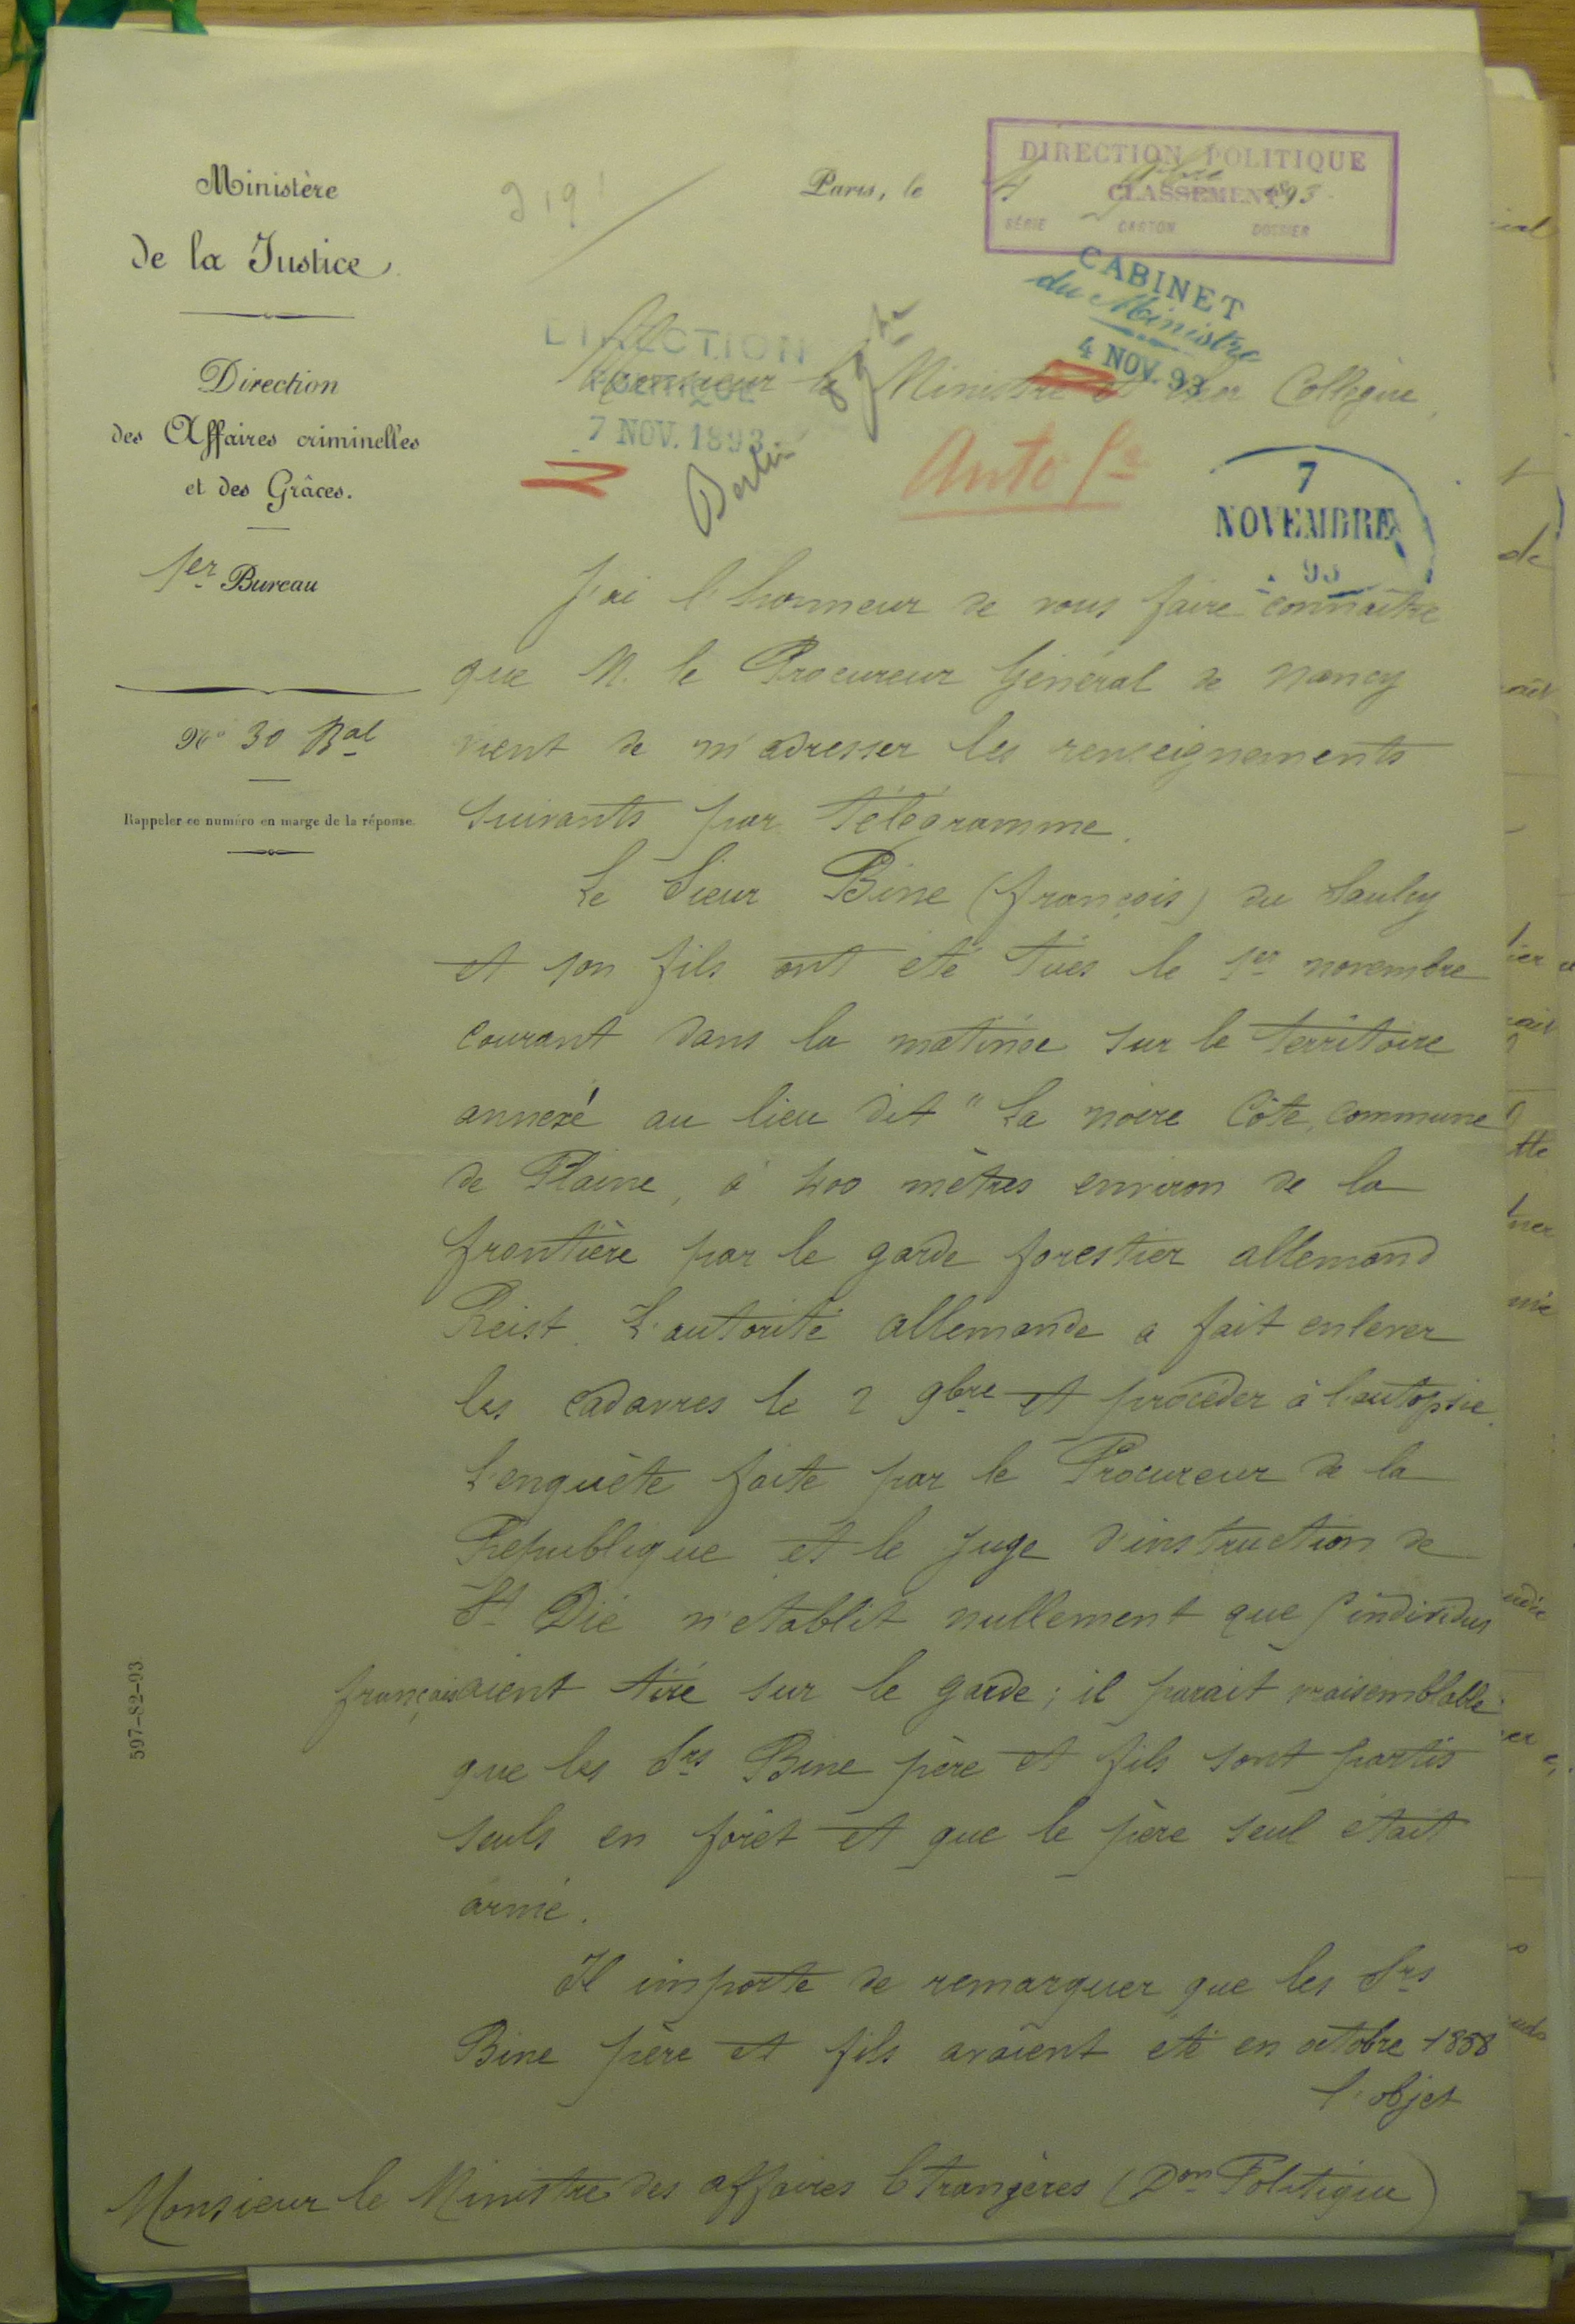 Ministère
de la Justice
Direction
des Affaires criminelles
et des Grâces.
1er Bureau
No 30 Bal
Rappeler ce numéro en marge de la réponse.
597-82-93
Paris, le 4 9bre 1893
DIRECTION POLITIQUE
CLASSEMENT
SÉRIE CARTON DOSSIER
CABINET
du Ministre
4 NOV. 93
DIRECTION
POLITIQUE
7 NOV. 1893
Berlin
8 9bre
7
NOVEMBRE
93
Monsieur le Ministre et cher Collègue,
J'ai l'honneur de vous faire connaître
que M. le Procureur Général de Nancy
vient de m'adresser les renseignements
suivants par télégramme.
Le Sieur Bine (François) du Saulcy
et son fils ont été tués le 1er novembre
courant dans la matinée sur le territoire
annexé au lieu dit "La noire Côte, commune
de Plaine, à 400 mètres environ de la
frontière par le garde forestier allemand
Reist. L'autorité allemande a fait enlever
les cadavres le 2 9bre et procéder à l'autopsie.
L'enquête faite par le Procureur de la
République et le juge d'instruction de
St Dié n'établit nullement que individus
français aient tiré sur le garde; il parait vraisemblable
que les Srs Bine père et fils sont partis
seuls en forêt et que le père seul était
armé.
Il importe de remarquer que les Srs
Bine père et fils avaient été en octobre 1888
l'objet
Monsieur le Ministre des affaires Etrangères (Don Politique)